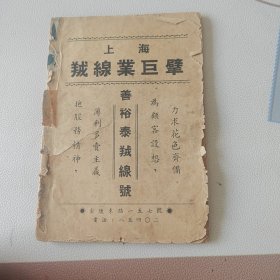 上海
絨線業巨擘
力求花色齊備、
為顧客設想、
善裕泰絨線號
薄利多賣主義
抱服務精神、